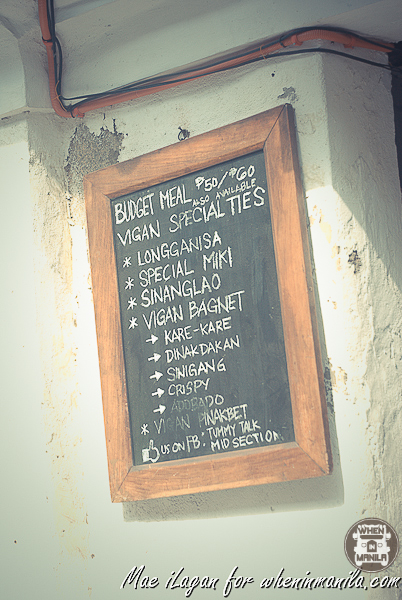 BUDGET MEAL ₱50/₱60
ALSO AVAILABLE
VIGAN SPECIALTIES
* LONGGANISA
* SPECIAL MIKI
* SINANGLAO
* VIGAN BAGNET
→ KARE-KARE
→ DINAKDAKAN
→ SINIGANG
→ CRISPY
→ ADOBADO
* VIGAN PINAKBET
US ON FB: TUMMY TALK
MIDSECTION
WHEN
IN
MANILA
Mae iLagan for wheninmanila.com